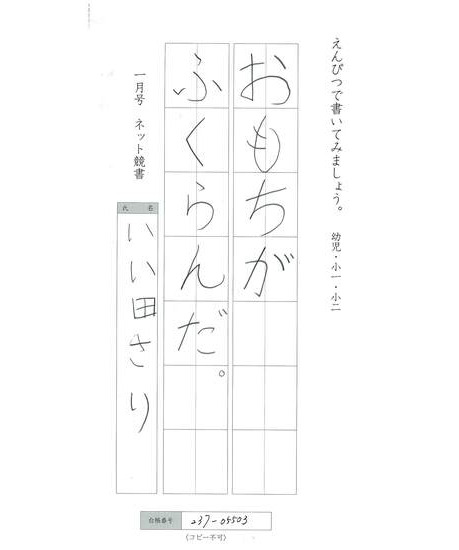 えんぴつで書いてみましょう。 幼児・小一・小二
おもちが
ふくらんだ。
一月号 ネット競書
氏名
いい田さり
台帳番号 237-05503
(コピー不可)